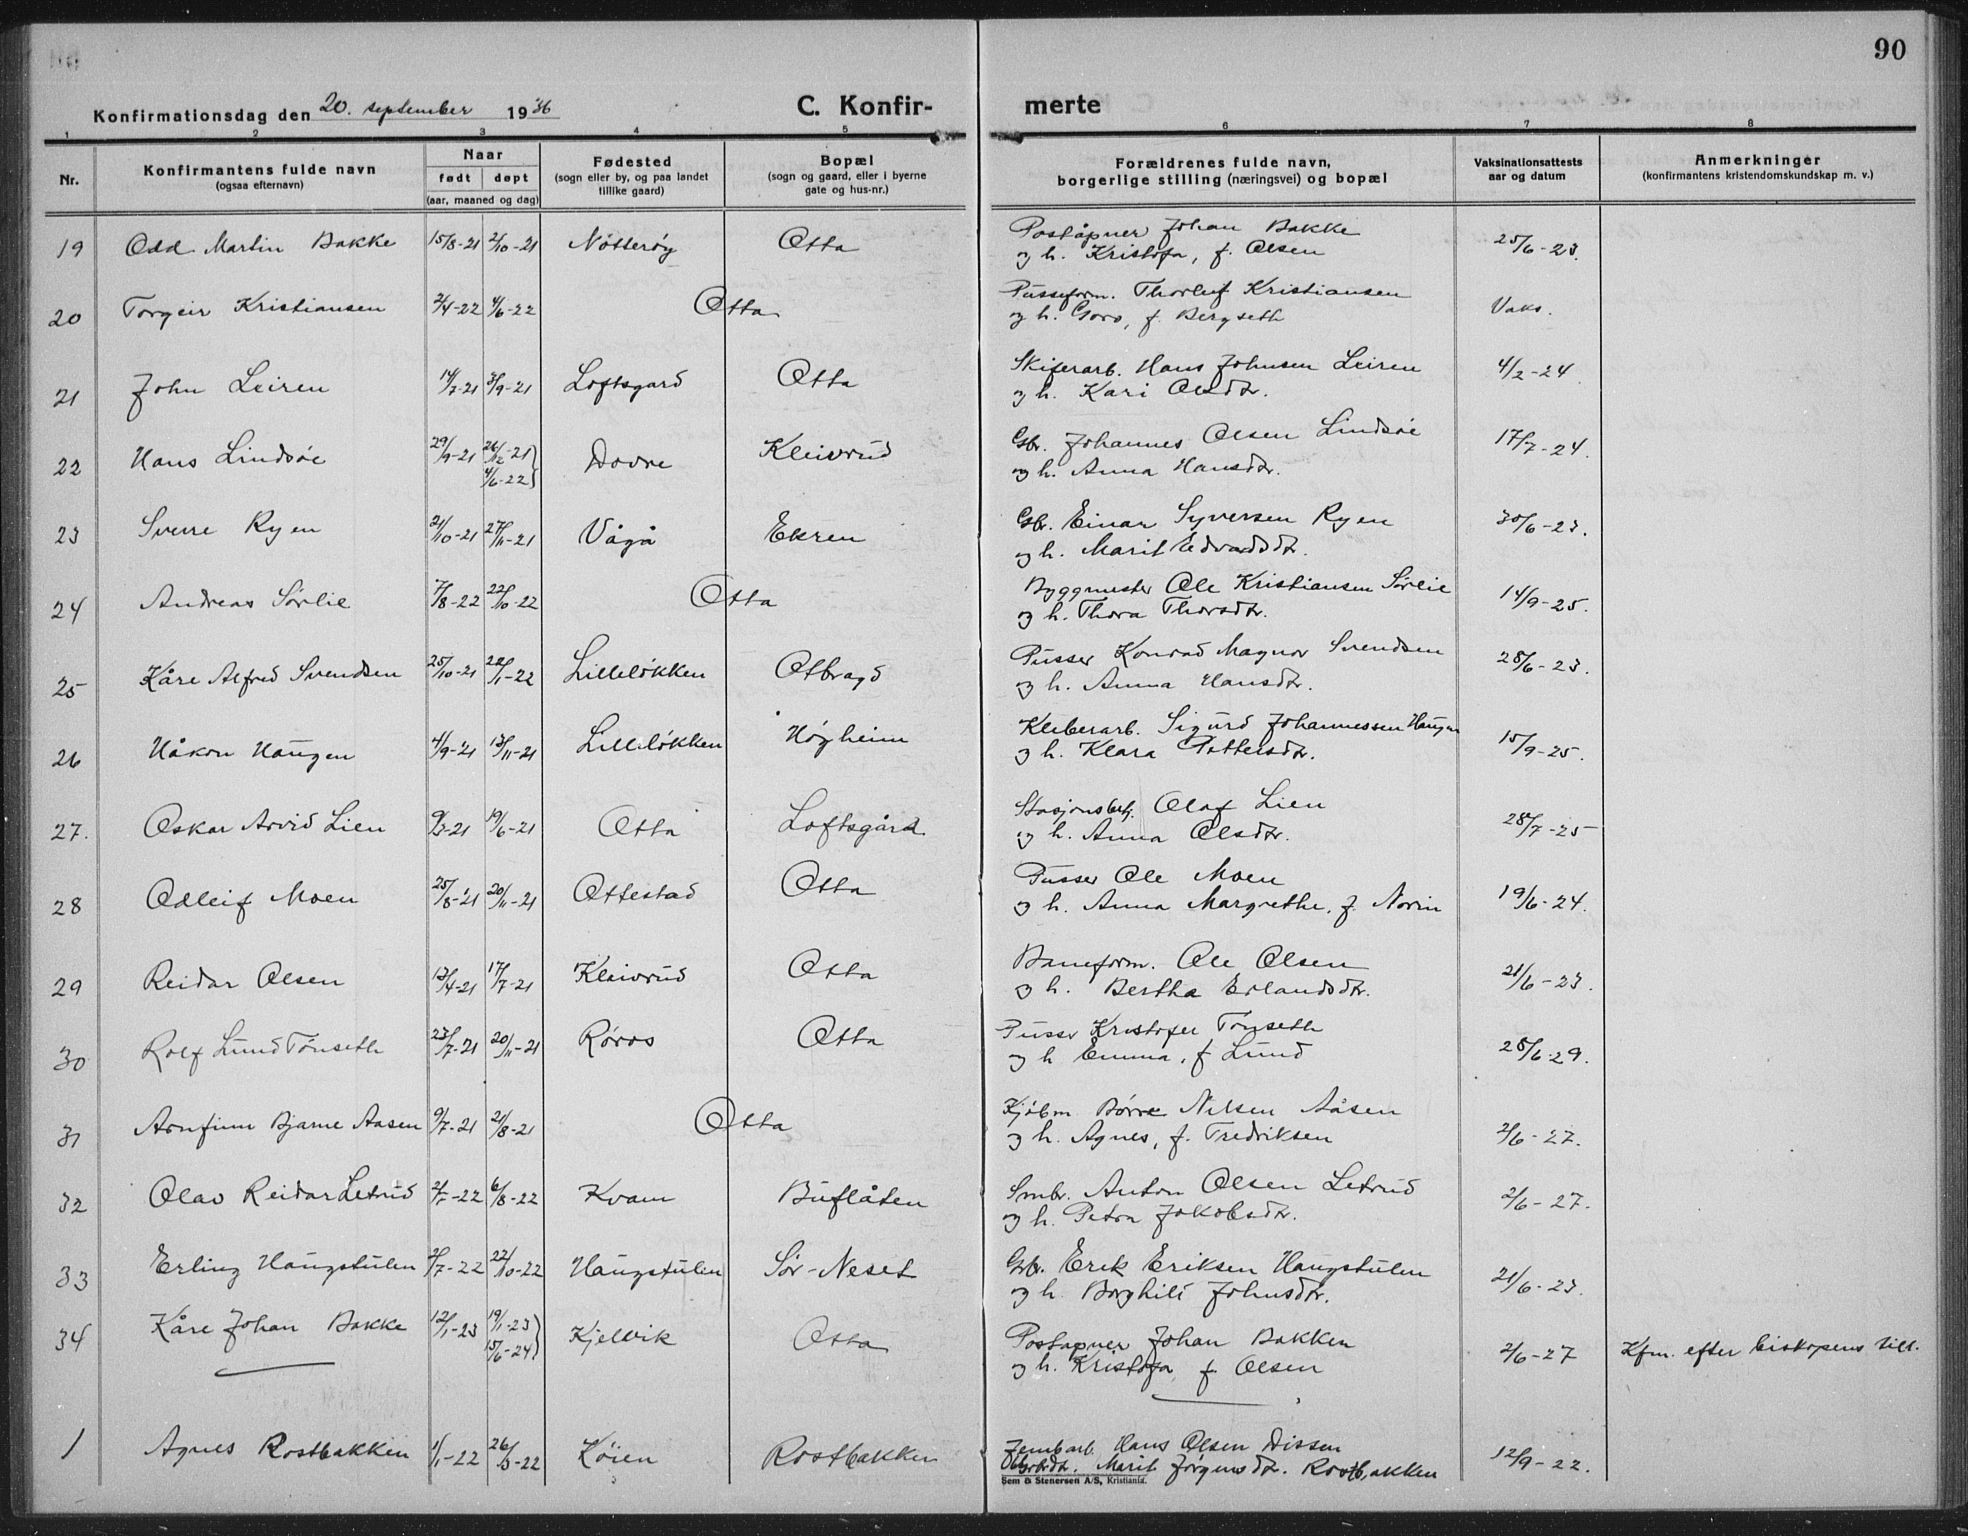 90
Konfirmationsdag den 20. september 1936
C. Konfirmerte
1 2 3 4 5 6 7 8
Nr.
Konfirmantens fulde navn
(ogsaa efternavn)
Naar
født døpt
(aar, maaned og dag)
Fødested
(sogn eller by, og paa landet
tillike gaard)
Bopæl
(sogn og gaard, eller i byerne
gate og hus-nr.)
Forældrenes fulde navn,
borgerlige stilling (næringsvei) og bopæl
Vaksinationsattests
aar og datum
Anmerkninger
(konfirmantens kristendomskundskap m. v.)
19 Odd Martin Bakke 15/8-21 2/10-21 Nøtterøy Otta Poståpner Johan Bakke 25/6-23.
og h. Kristofa, f. Olsen
20 Torgeir Kristiansen 2/4-22 4/6-22 Otta Pusseform. Thorleif Kristiansen Vaks.
og h. Goro, f. Bergseth
21 John Leiren 14/7-21 3/9-21 Loftsgard Otta Skiferarb. Hans Johnsen Leiren 4/2-24
og h. Kari Olsdtr.
22 Hans Lindsøe 29/9-21 26/12-21 4/6-22 Dovre Kleivrud Gbr. Johannes Olsen Lindsøe 17/7-24.
og h. Anna Hansdtr.
23 Sverre Ryen 21/10-21 27/11-21 Vågå Ekren Gbr. Einar Syversen Ryen 30/6-23.
og h. Marit Edvardsdtr.
24 Andreas Sørlie 7/8-22 22/10-22 Otta Byggmester Ole Kristiansen Sørlie 14/9-25.
og h. Thora Thorsdtr.
25 Kåre Alfred Svendsen 25/10-21 22/1-22 Lilleløkken Ottbragd Pusser Konrad Magnor Svendsen 28/6-23.
og h. Anna Hansdtr.
26 Håkon Haugen 4/9-21 13/11-21 Lilleløkken Høgheim Kleberarb. Sigurd Johannessen Haugen 15/9-25.
og h. Klara Pettersdtr.
27. Oskar Arvid Lien 9/3-21 19/6-21 Otta Loftsgård Stasjonsbetj. Olaf Lien 28/7-25
og h. Anna Olsdtr.
28 Odleif Moen 25/8-21 20/11-21 Ottestad Otta Pusser Ole Moen 19/6-24.
og h. Anna Margrethe, f. Norin
29 Reidar Olsen 13/4-21 17/7-21 Kleivrud Otta Baneform. Ole Olsen 21/6-23.
og h. Bertha Erlandsdtr.
30 Rolf Lund Tønseth 23/7-21 20/11-21 Røros Otta Pusser Kristofer Tønseth 28/6-29.
og h Emma, f Lund
31 Arnfinn Bjarne Aasen 9/7-21 21/8-21 Otta Kjøbm Børre Nilsen Aåsen 2/6-27.
og h. Agnes, f. Fredriksen
32 Olav Reidar Letrud 2/7-22 6/8-22 Kvam Buflåten Smbr. Anton Olsen Letrud 2/6-27.
og h. Petra Jakobsdtr.
33 Erling Haugstulen 2/7-22 22/10-22 Haugstulen Sør-Neset Gbr. Erik Eriksen Haugstulen 21/6-23.
og h. Borghild Johnsdtr.
34 Kåre Johan Bakke 12/1-23 19/1-23 15/6-24 Kjelvik Otta Postapner Johan Bakken 2/6-27 Kfm. efter biskopens till.
og h. Kristofa f Olsen
1 Agnes Rostbakken 1/1-22 26/3-22 Køien Rostbakken Jernbarb. Hans Olsen Dissen 12/9-22.
Marit Jørgensdtr. Rostbakken
Sem & Stenersen A/S, Kristiania.